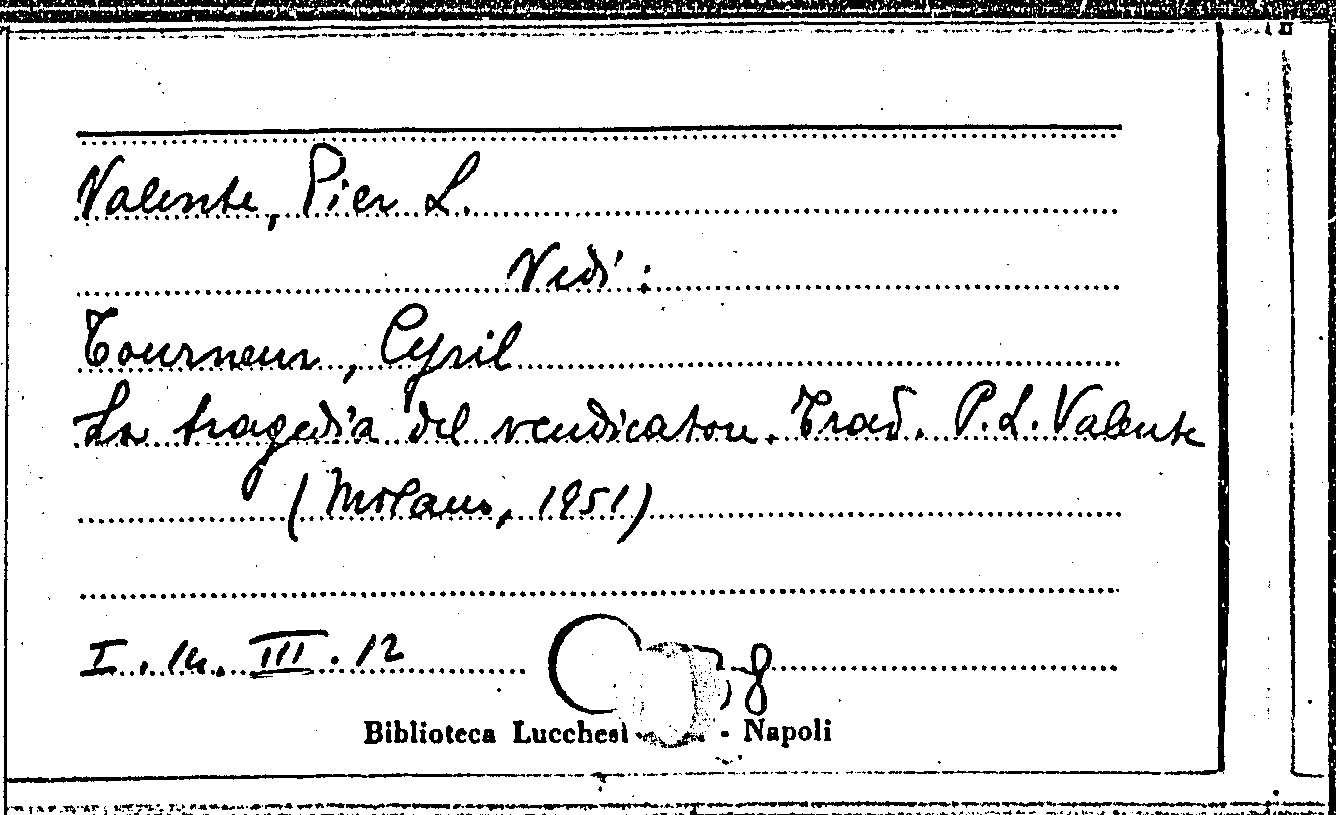 Valente, Pier L.
Vedi:
Tourneur, Cyril
La tragedia del vendicatore. Trad. P.L. Valente
(Milano, 1951)
I. III. 12
Biblioteca - Napoli